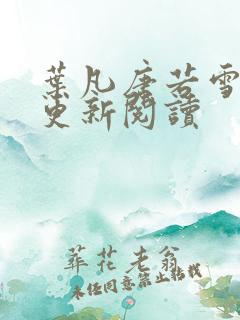 葉凡唐若雪
更新閱讀
葬花老翁
未经同意禁止转载